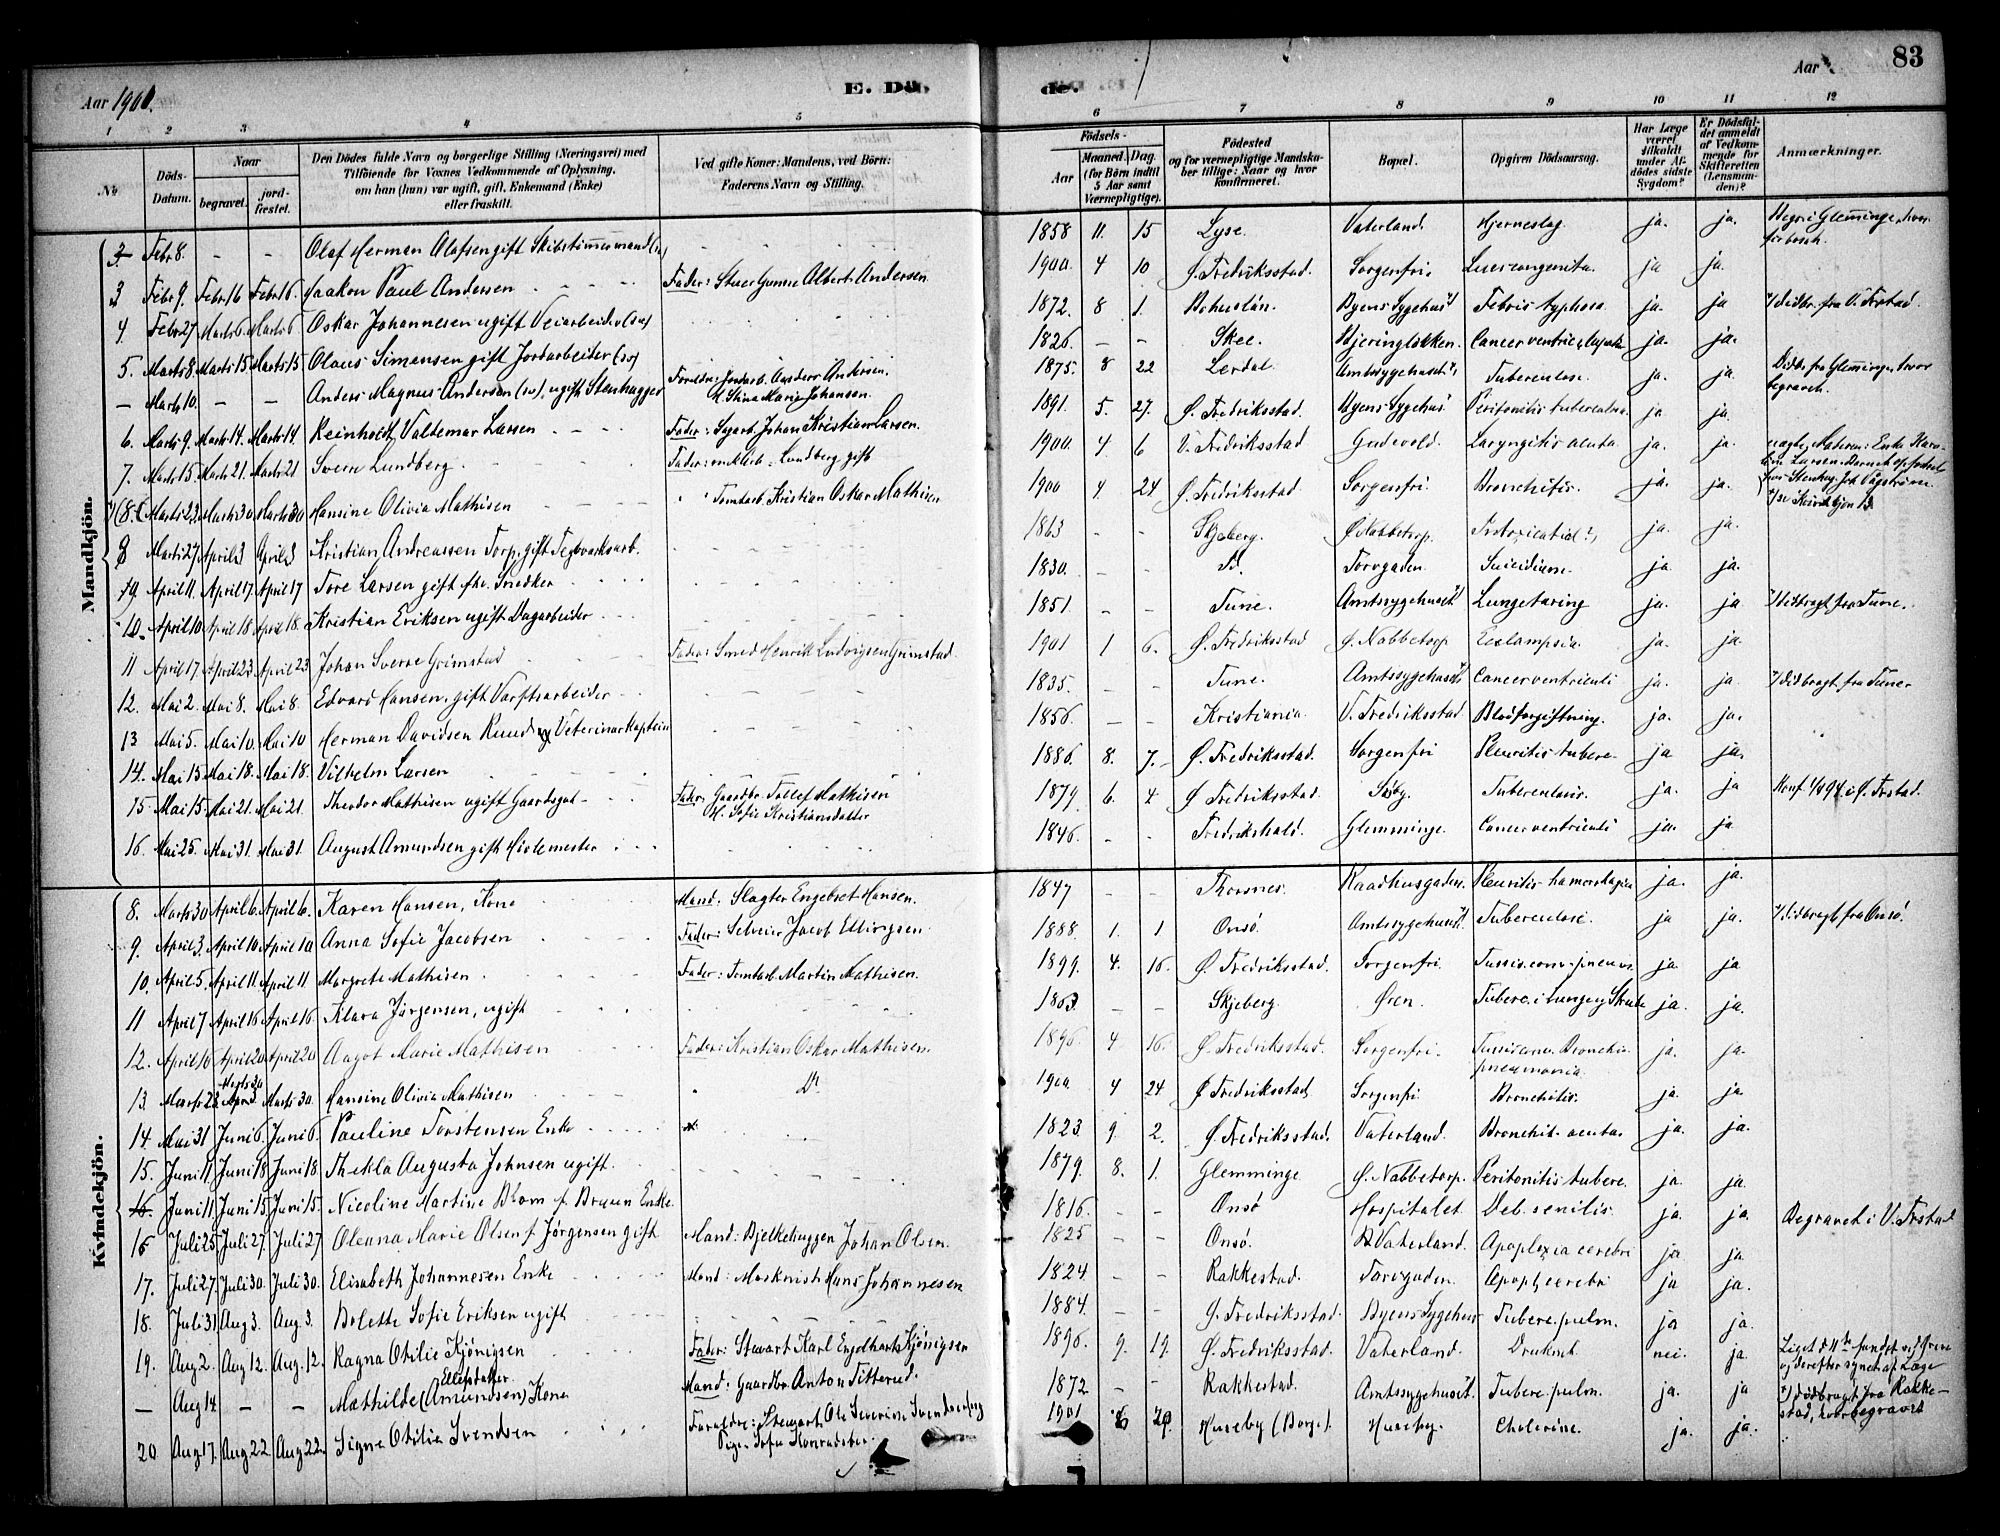 83
Aar 1901.
E. Dö
de.
Aar
1 2 3 4 5 6 7 8 9 10 11 12
No
Döds-Datum.
Naar
begravet.
jord-fæstet.
Den Dödes fulde Navn og borgerlige Stilling (Næringsvei) med
Tilföiende for Voxnes Vedkommende af Oplysning,
om han (hun) var ugift, gift, Enkemand (Enke)
eller fraskilt.
Ved gifte Koner: Mandens, ved Börn:
Faderens Navn og Stilling.
Födsels-
Aar
Maaned. Dag.
(for Börn indtil
5 Aar samt
Værnepligtige).
Födested
og for værnepligtige Mandska-
ber tillige: Naar og hvor
konfirmeret.
Bopæl.
Opgiven Dödsaarsag.
Har Læge
været
tilkaldt
under Af-
dödes sidste
Sygdom?
Er Dödsfal-
det anmeldt
af Vedkom-
mende for
Skifteretten
(Lensman-
den)?
Anmærkninger.
Mandkjön.
3. Febr 8. — — Olaf Herman Olafsen gift Skibstimmermand 1858 11. 15 Lyse. Vaterland. Hjerneslag ja. ja. Begr. i Glemminge, hvor
3 Febr 9. Febr 16 Febr 16. Haakon Paul Andersen Fader: Albert Andersen 1900. 4 10 Ø. Fredriksstad. Sorgenfri. Lues congenita. ja ja.
4 Febr 27 Marts 6 Marts 6 Oskar Johannesen ugift Veiarbeider (sv) 1872. 8 1. Bohuslän. Byens Sygehus Febris typhosa. ja. ja didbr. fra V. Frstad.
5. Marts 8 Marts 15 Marts 15 Olaus Simensen gift Jordarbeider (sv) 1826. — — Skee. Bjeringløkken. Cancer ventriculi ja. ja.
— Marts 10. — — Anders Magnus Andersen (sv), ugift Stenhugger Foreldre: Jordarb. Anders Andersen, Stina Maria Johansen. 1875. 8 22 Lerdal. Amtssygehuset Tuberculose. ja. ja. Didbr. fra Glemminge, hvor begravet.
6. Marts 9. Marts 14. Marts 14. Reinholdt Valdemar Larsen Fader: Sagarb. Johan Kristian Larsen. 1891. 5. 27. Ø. Fredriksstad. Byens Sygehus Peritonitis tuberculosa. ja ja.
7. Marts 15. Marts 21. Marts 21 Sverre Lundberg. Fader: Lundberg gift 1900. 4 6 V. Fredriksstad Gudevold. Laryngitis acuta. ja. ja.
(8. Marts 23. Marts 30 Marts 30 Hansine Olivia Mathisen Tomtarb. Kristian Oskar Mathisen 1900 4 24 Ø. Fredriksstad. Sorgenfri. Bronchitis. ja. ja.
8 Marts 27 April 3 April 3 Kristian Andreassen Torp, gift Teglværksarb. 1863 — — Skjeberg. Ø. Nabbetorp. Intoxicatio? ja. ja.
9. April 11. April 17. April 17 Tore Larsen gift fhv. Snedker 1830. — — Torvgaden. Suicidium. ja. ja.
10. April 10 April 18 April 18. Kristian Eriksen ugift Dagarbeider 1851. — — Tune. Amtssygehuset Lungetæring ja. ja didbragt fra Tune.
11 April 17. April 23 April 23 Johan Sverre Grimstad Fader: Smed Henrik Ludvigsen Grimstad. 1901 1 6. Ø. Fredriksstad Ø. Nabbetorp Eclampsia. ja. ja.
12. Mai 2. Mai 8. Mai 8 Edvard Hansen, gift Værftsarbeider 1835. — — Tune. Amtssygehuset Cancer ventriculi ja. ja. didbragt fra Tune.
13 Mai 5. Mai 10. Mai 10 Herman Davidsen Ruud Veterinærkaptein 1856. — — Kristiania. V. Fredriksstad. Blodforgiftning. ja. ja.
14. Mai 15 Mai 18. Mai 18. Vilhelm Larsen 1886. 8. 7. Ø. Fredriksstad. Sorgenfri Pleuritis tuberc. ja ja.
15 Mai 15. Mai 21. Mai 21. Theodor Mathisen ugift Gaardsgut Fader: Gaardbr. Tollef Mathisen Sofie Kristiansdatter 1879. 6. 4 Ø Fredriksstad. Tuberculosis. ja. ja Konf. 1894 i Ø. Frstad.
16. Mai 25. Mai 31. Mai 31. August Amundsen gift Hjulemester 1846. — — Fredrikshald. Glemminge. Cancer ventriculi ja. ja.
Kvindekjön.
8. Marts 30 April 6. April 6. Karen Hansen, Kone Mand: Slagter Engebret Hansen. 1847 — — Thorsnes. Raadhusgaden. Pleuritis hæmorrhagica ja. ja.
9. April 3. April 10 April 10 Anna Sofie Jacobsen Fader: Selveier Jacob Ellingsen 1888. 1. 1 Onsö. Amtssygehuset. Tuberculose ja ja. didbragt fra Onsö.
10. April 5. April 11. April 11. Margrete Mathisen Fader: Tomtarb. Martin Mathisen. 1899. 4. 16. Ø. Fredriksstad. Sorgenfri. Tussis conv. pneum. ja ja
11 April 7 April 16 April 16. Klara Jørgensen, ugift 1863 — — Skjeberg. Øren. Tuberc. i Lunger & Strube ja. ja.
12. April 10 April 20 April 20 Aagot Marie Mathisen Fader: Kristian Oskar Mathisen. 1896 4 16. Ø. Fredriksstad. Sorgenfri. Tussis conv. Bronchopneumonia. ja. ja.
13. Marts 23 Marts 30 Marts 30. Hansine Olivia Mathisen Do 1900 4 24 Ø Fredriksstad Sorgenfri Bronchitis. ja. ja.
14. Mai 31 Juni 6. Juni 6. Pauline Torstensen Enke 1823 9. 2. Ø. Fredriksstad. Vaterland. Bronchit. acuta. ja. ja.
15. Juni 11. Juni 18 Juni 18. Thekla Augusta Johnsen ugift 1879. 8. 1. Glemminge Ø. Nabbetorp. Peritonitis tuberc. ja. ja
16. Juni 11. Juni 15. Juni 15. Nicoline Martine Blom f. Bruun Enke. 1816. — — Onsö Hospitalet. Deb. senilis. ja. ja. Begravet i V. Frstad
16 Juli 25 Juli 27. Juli 27 Oleana Marie Olsen f. Jørgensen gift Mand: Bjelkehugger Johan Olsen. 1825 — — Onsö. Vaterland. Apoplexia cerebri ja ja.
17. Juli 27. Juli 30. Juli 30. Elisabeth Johannesen Enke Mand: Maskinist Hans Johannesen 1824 — — Rakkestad. Torvgaden. Apopl. cerebri ja ja.
18. Juli 31 Aug 3. Aug 3. Bolette Sofie Eriksen ugift 1884. — — Ø. Fredriksstad. Byens Sygehus Tuberc. pulm. ja ja.
19. Aug 2. Aug 12. Aug. 12. Ragna Otilie Kjønigsen Fader: Stuart Karl Engelhart Kjønigsen 1896. 9. 19. Ø. Fredriksstad. Vaterland. Druknet nei. ja. Liget d. 4de fundet ved Øren og derefter synet af Læge
— Aug 14. — — Mathilde (Amundsen) Ellefsdatter Kone Mand: Gaardbr. Anton Titterud. 1872 — — Rakkestad. Amtssygehuset. Tuberc. pulm. ja. ja didbragt fra Rakkestad, hvor begravet
20. Aug 17. Aug 22. Aug 22. Signe Otilia Svendsen Foreldre: Ole Severin Svendsen Pige Sofie 1901 6 29. Huseby (Borge). Huseby. Cholerine. ja. ja.